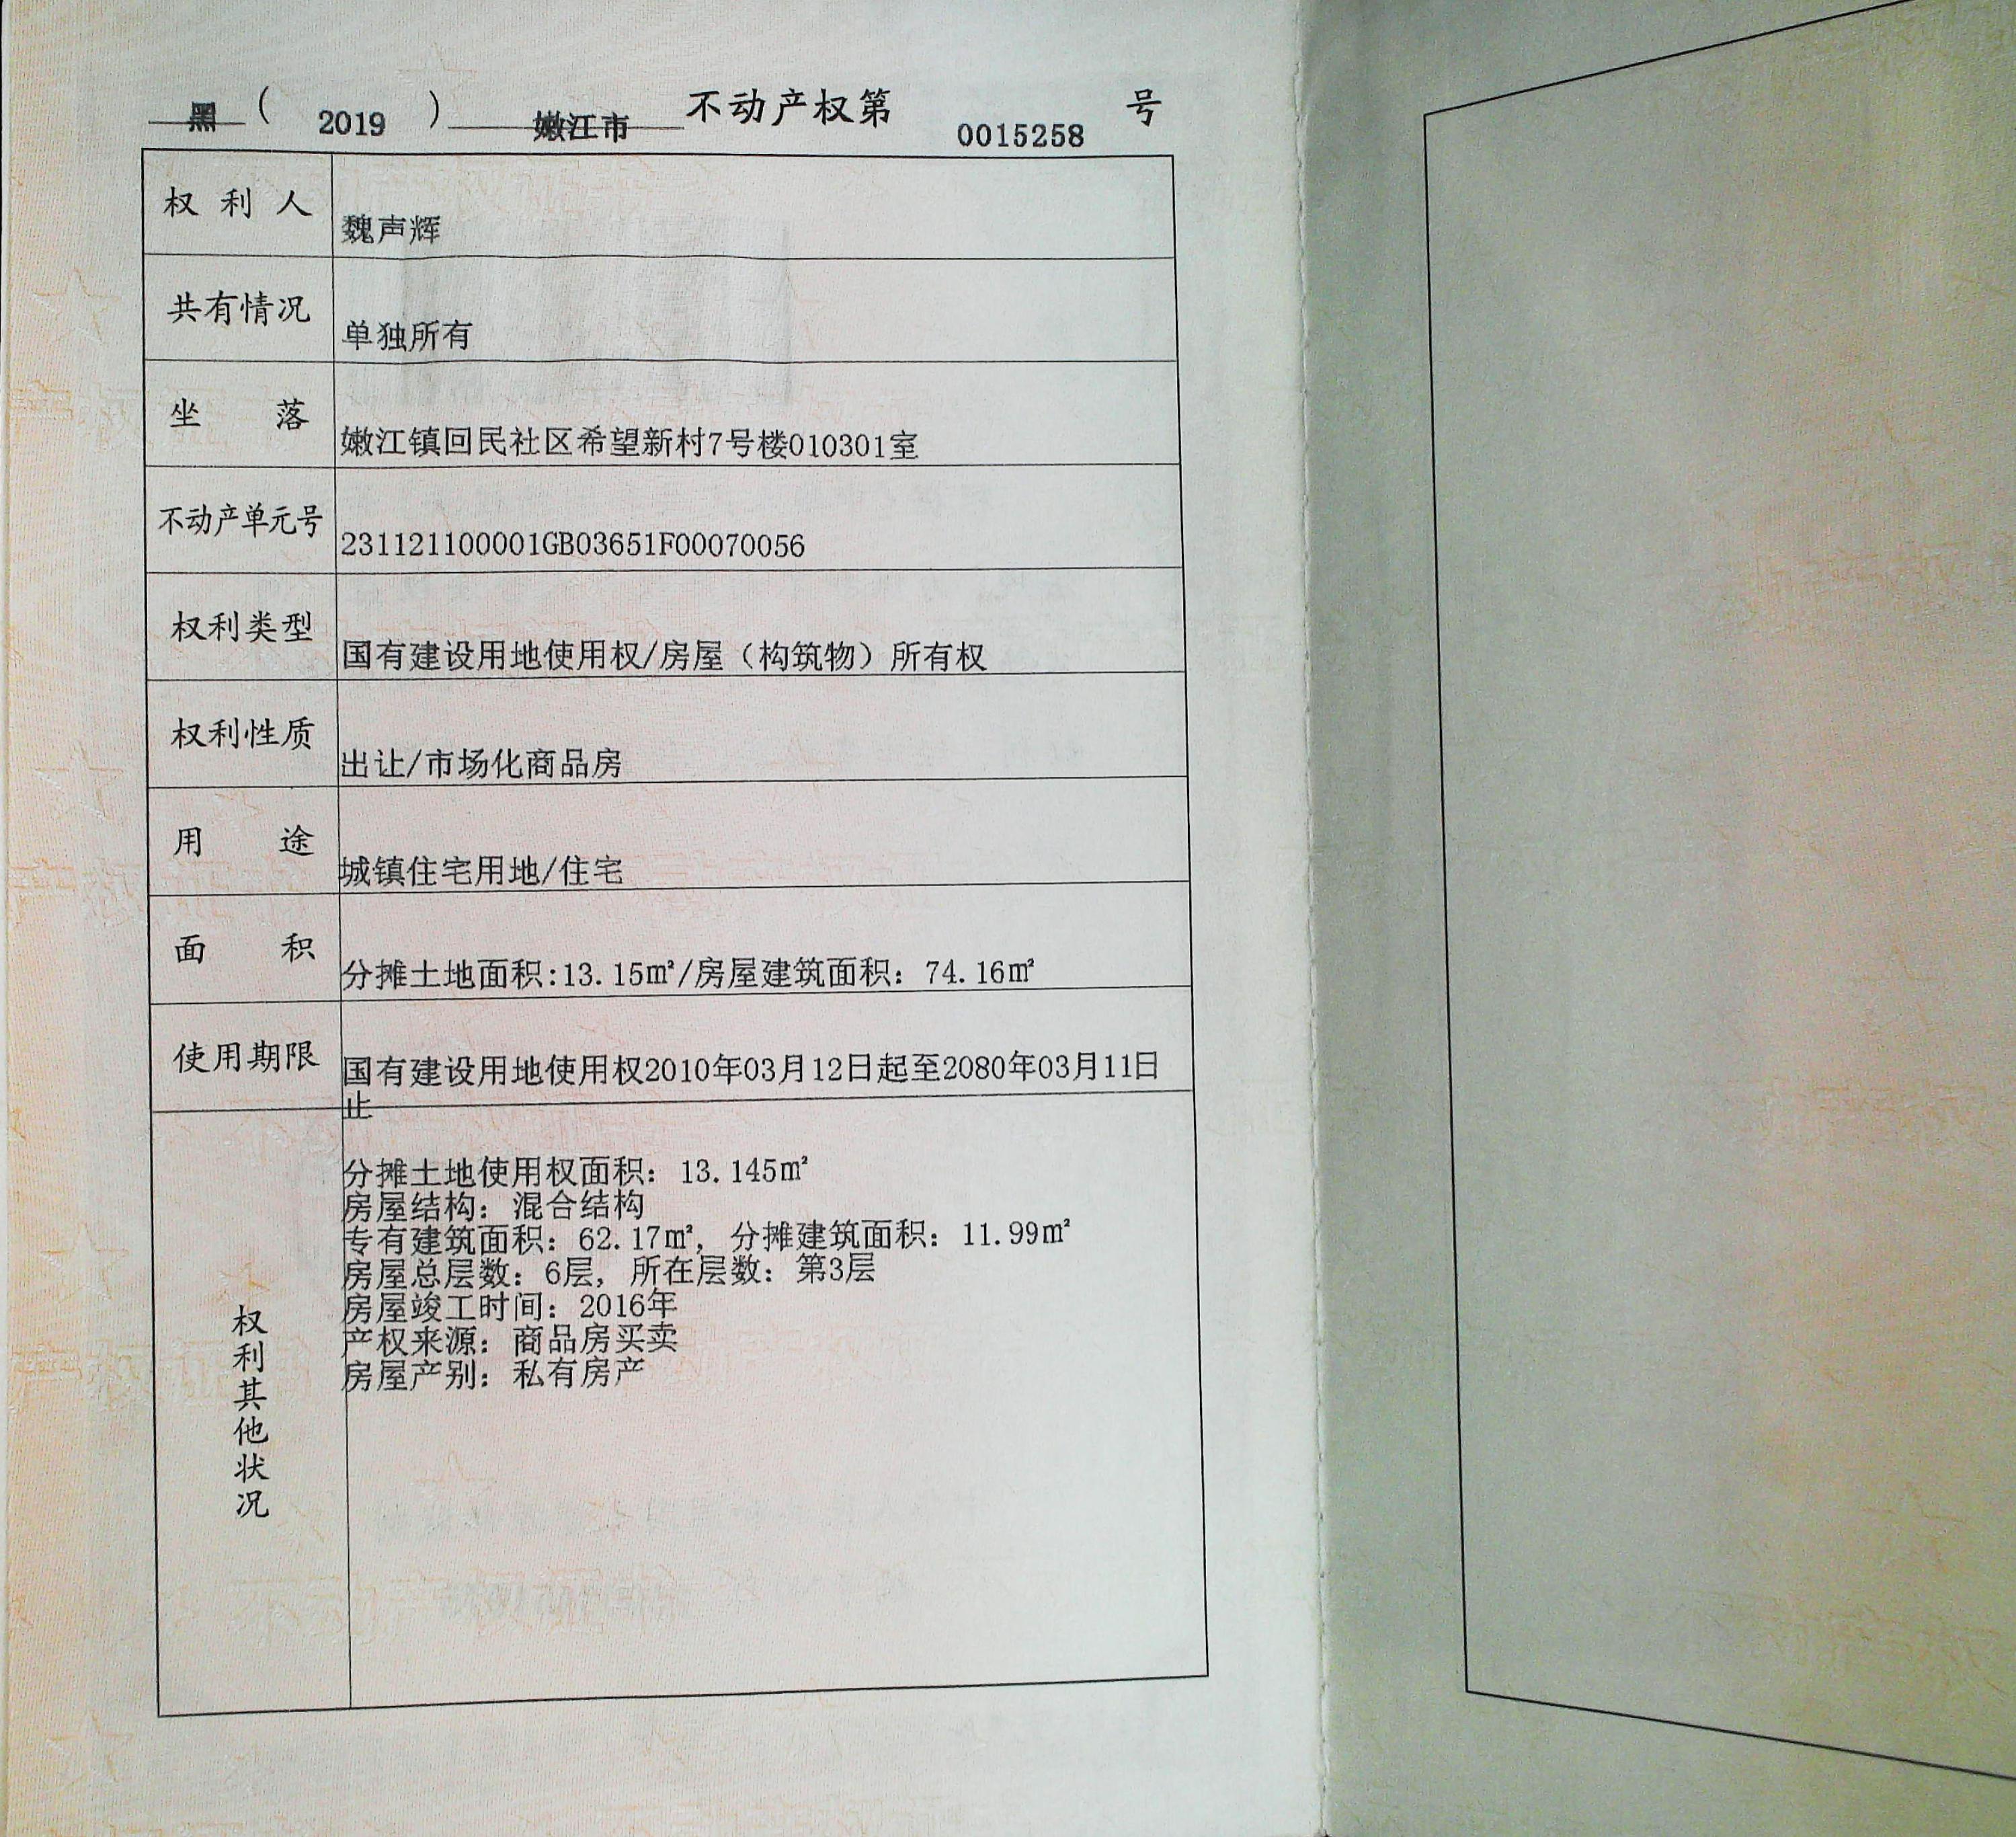 黑（2019）嫩江市不动产权第0015258号
权利人 魏声辉
共有情况 单独所有
坐落 嫩江镇回民社区希望新村7号楼010301室
不动产单元号 231121100001GB03651F00070056
权利类型 国有建设用地使用权/房屋（构筑物）所有权
权利性质 出让/市场化商品房
用途 城镇住宅用地/住宅
面积 分摊土地面积:13.15㎡/房屋建筑面积：74.16㎡
使用期限 国有建设用地使用权2010年03月12日起至2080年03月11日
止
权利其他状况
分摊土地使用权面积：13.145㎡
房屋结构：混合结构
专有建筑面积：62.17㎡，分摊建筑面积：11.99㎡
房屋总层数：6层，所在层数：第3层
房屋竣工时间：2016年
产权来源：商品房买卖
房屋产别：私有房产